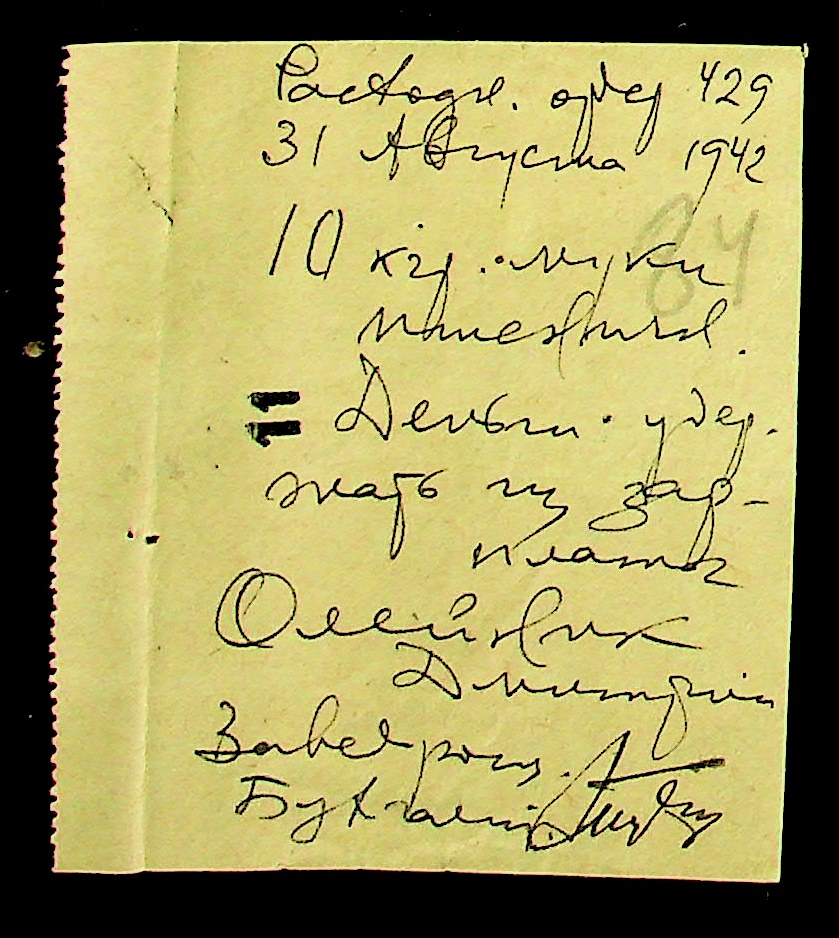 Расходн. ордер 429
31 Августа 1942
10 кгр. муки
64
пшеничн.
11 Деньги удер-
жать из зар-
платы
Олейник
Дмитрий
Завед
Бухгалт.